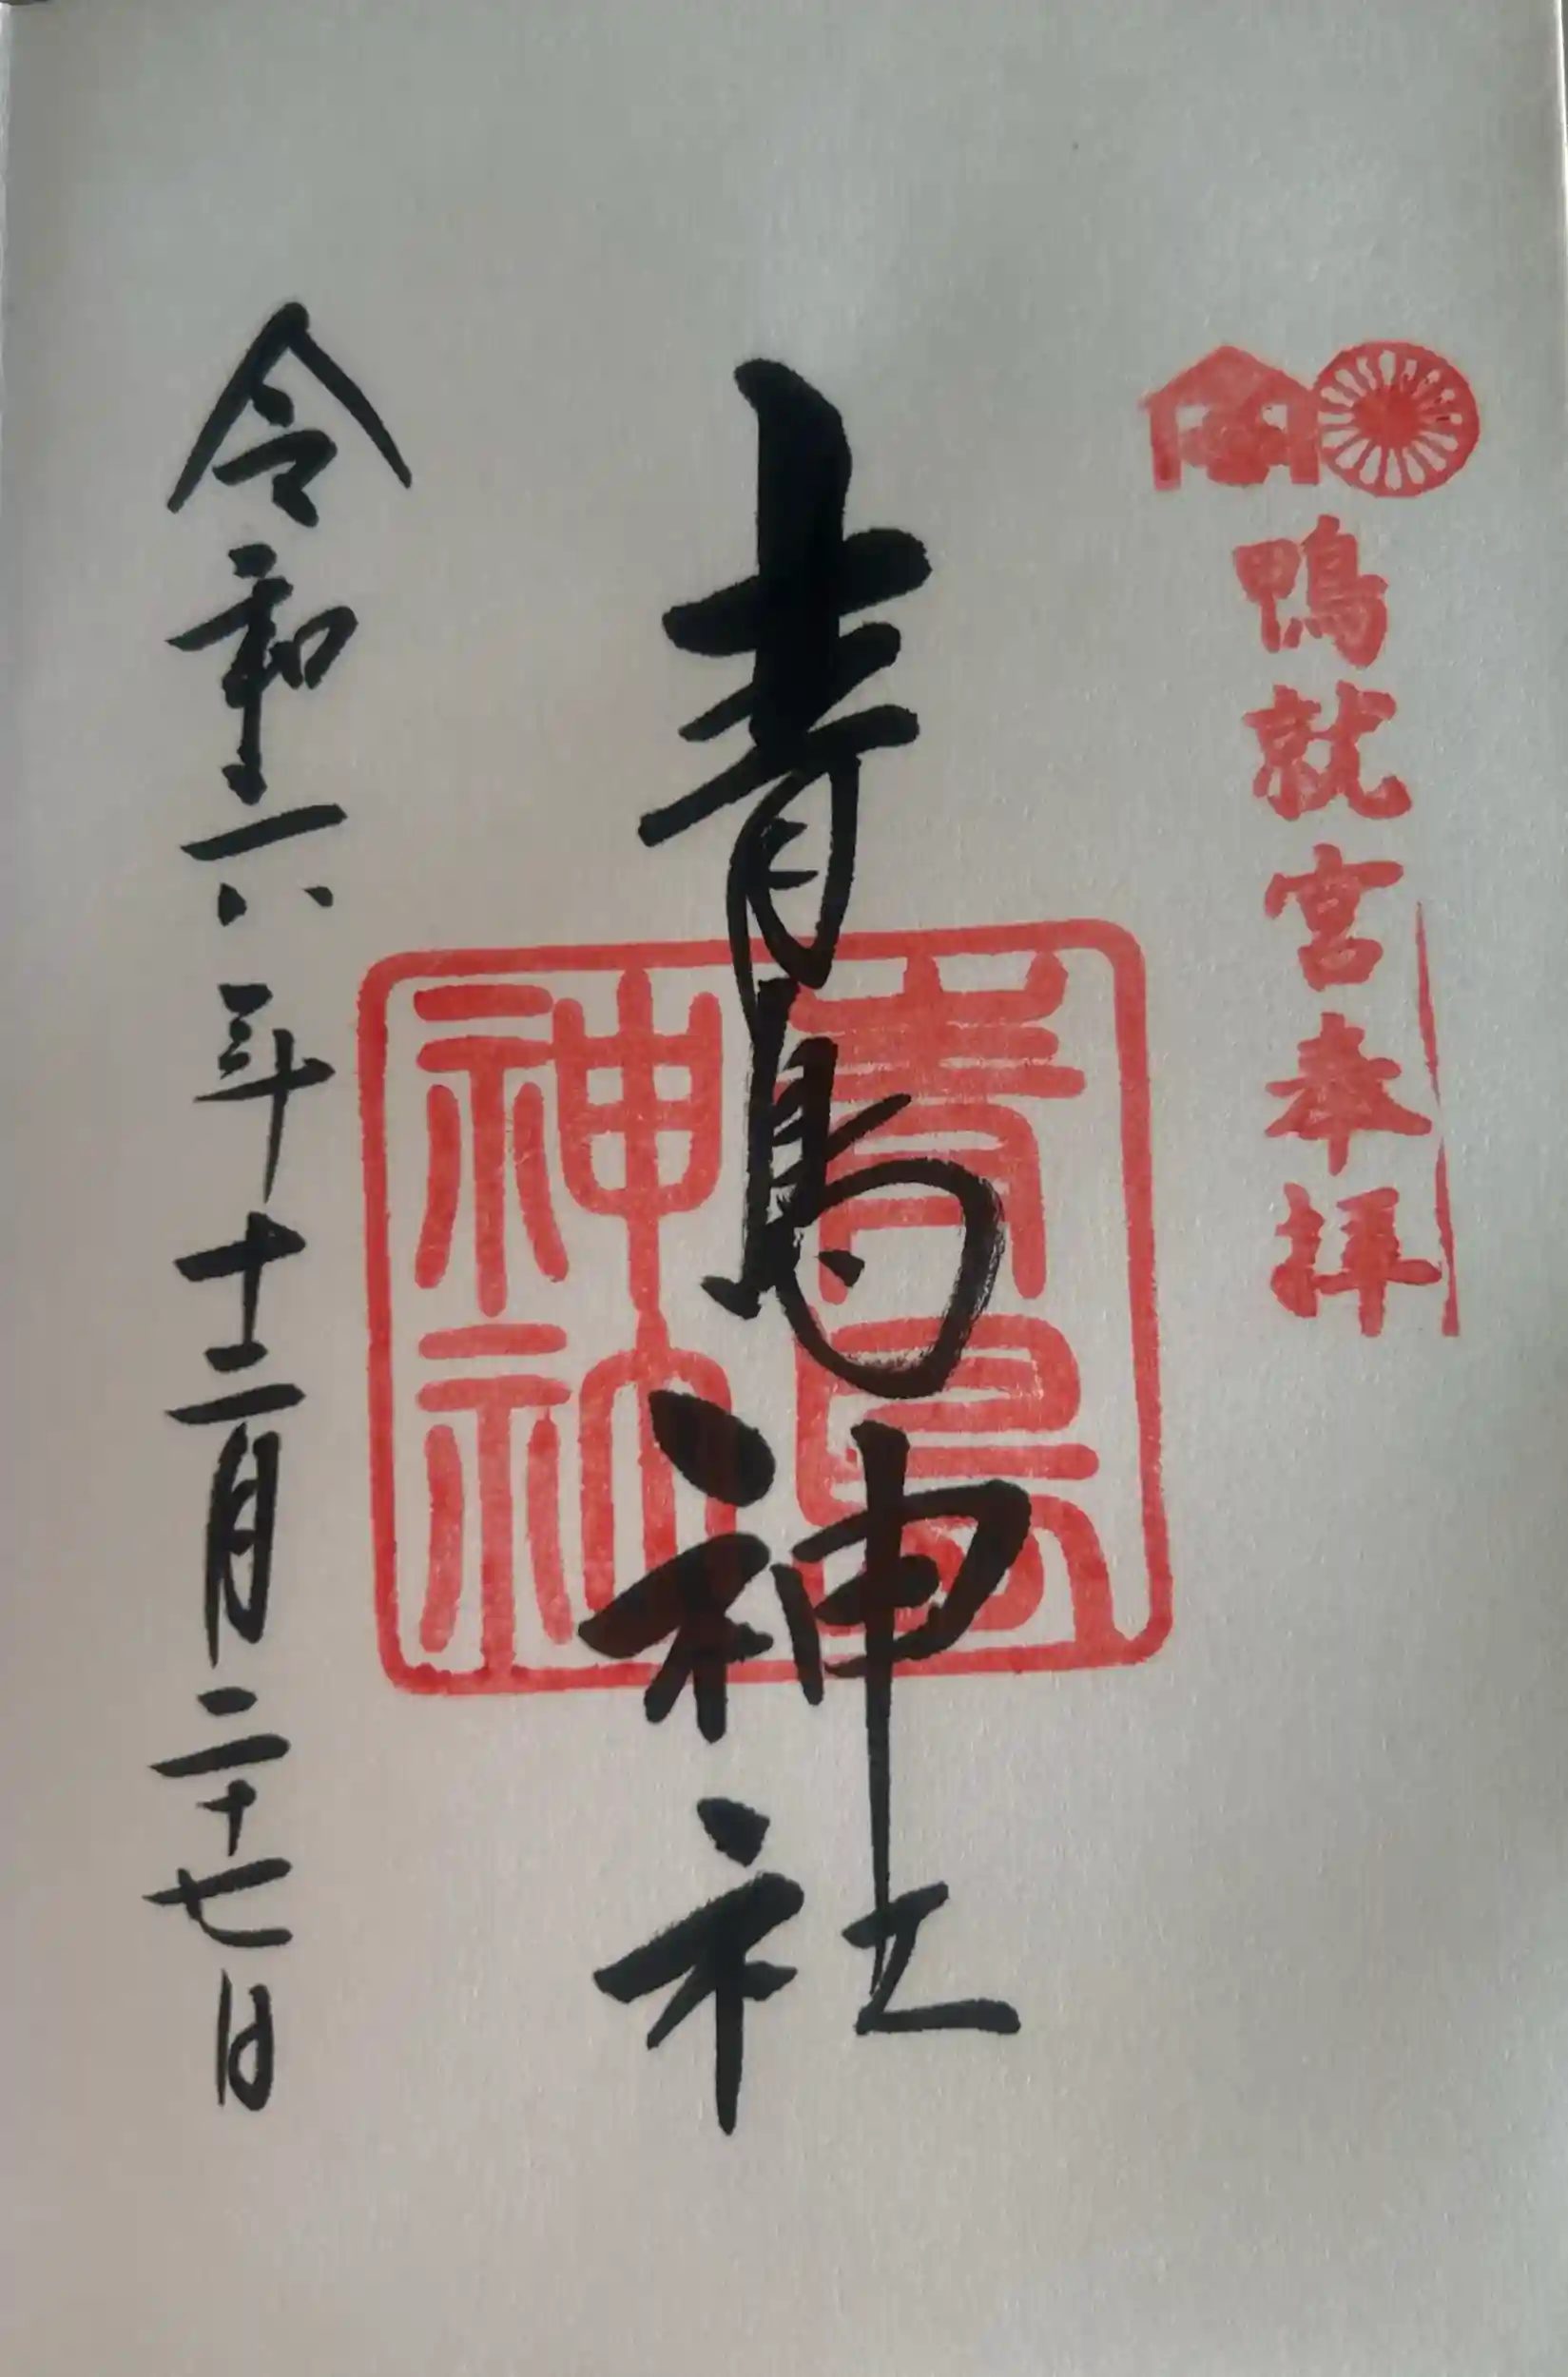 鴨就宮奉拝
青島神社
青島
神社
令和六年十二月二十七日